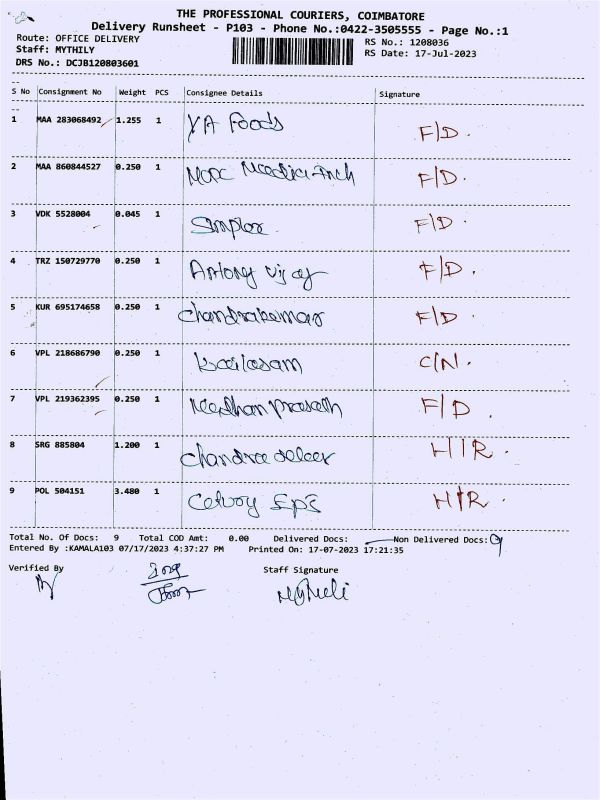 THE PROFESSIONAL COURIERS, COIMBATORE
Delivery Runsheet - P103 - Phone No.:0422-3505555 - Page No.:1
Route: OFFICE DELIVERY RS No.: 1208036
Staff: MYTHILY RS Date: 17-Jul-2023
DRS No.: DCJB120803601
S No Consignment No Weight PCS Consignee Details Signature
1 MAA 283068492 1.255 1 YA Foods F/D.
2 MAA 860844527 0.250 1 F/D.
3 VDK 5528004 0.045 1 F/D.
4 TRZ 150729770 0.250 1 Antony Vijay F/D.
5 KUR 695174658 0.250 1 Chandrakumar F/D.
6 VPL 218686790 0.250 1 Kailasam C/N.
7 VPL 219362395 0.250 1 Prasath F/D.
8 SRG 885804 1.200 1 H/R.
9 POL 504151 3.480 1 H/R.
Total No. Of Docs: 9 Total COD Amt: 0.00 Delivered Docs: Non Delivered Docs: 9
Entered By :KAMALA103 07/17/2023 4:37:27 PM Printed On: 17-07-2023 17:21:35
Verified By Staff Signature